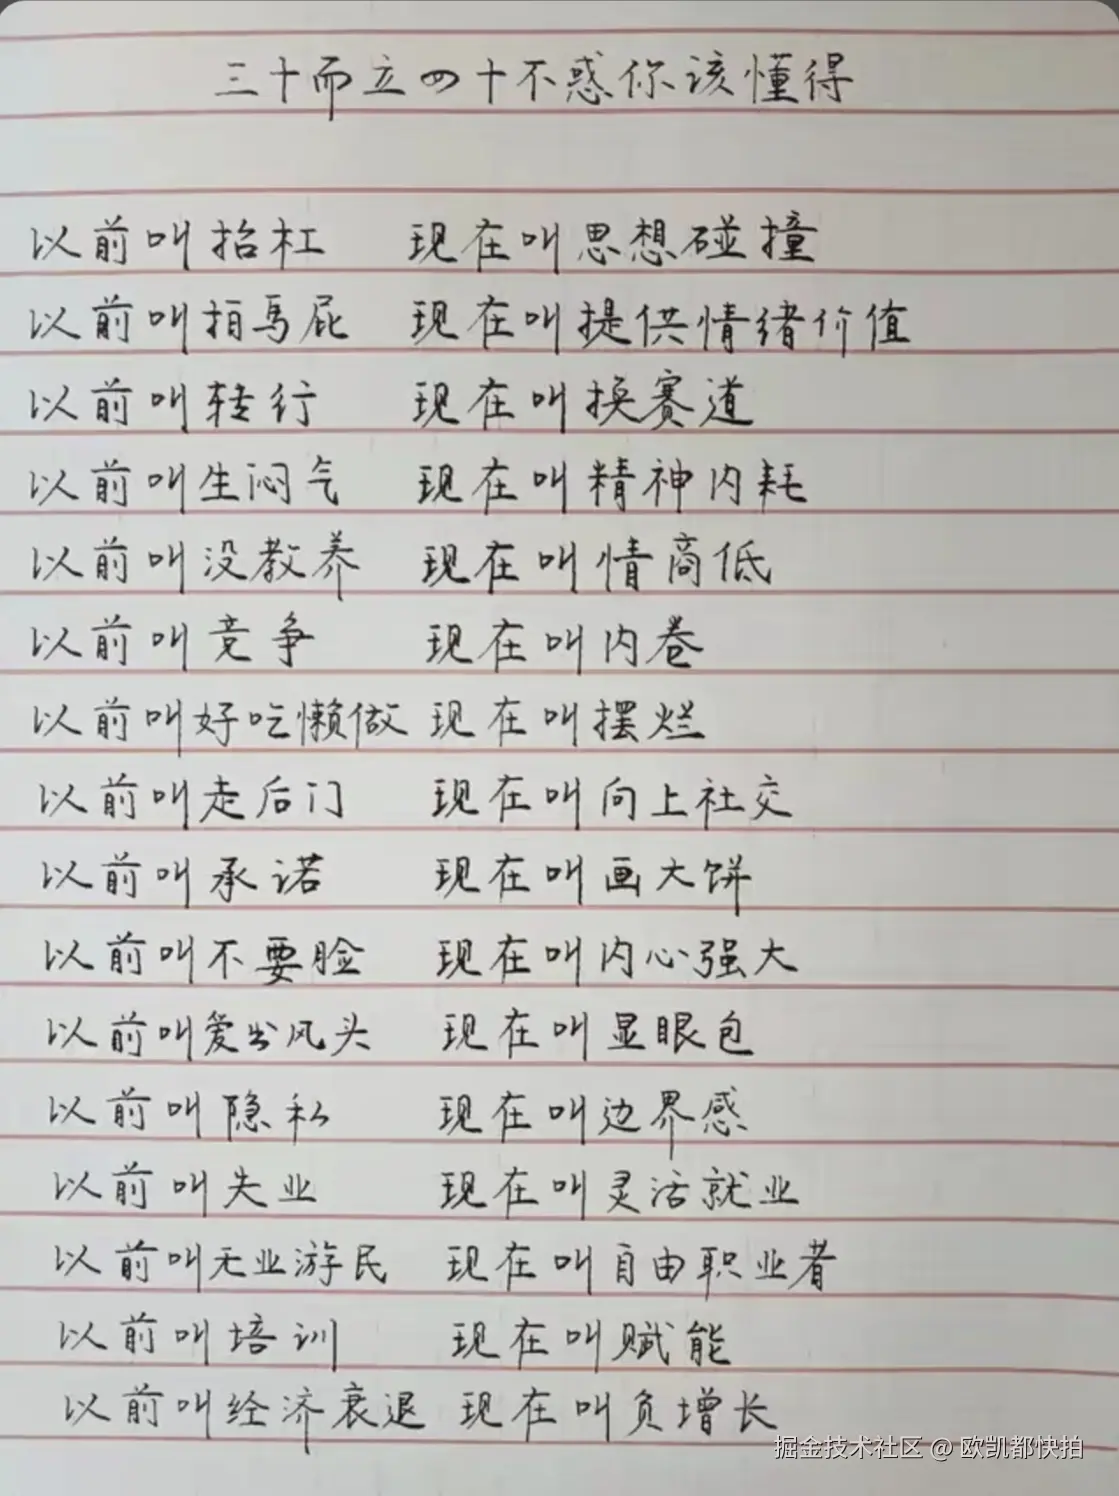 三十而立四十不惑你该懂得
以前叫抬杠 现在叫思想碰撞
以前叫拍馬屁 现在叫提供情绪价值
以前叫转行 现在叫换赛道
以前叫生闷气 现在叫精神内耗
以前叫没教养 现在叫情商低
以前叫竞争 现在叫内卷
以前叫好吃懒做 现在叫摆烂
以前叫走后门 现在叫向上社交
以前叫承诺 现在叫画大饼
以前叫不要脸 现在叫内心强大
以前叫爱出风头 现在叫显眼包
以前叫隐私 现在叫边界感
以前叫失业 现在叫灵活就业
以前叫无业游民 现在叫自由职业者
以前叫培训 现在叫赋能
以前叫经济衰退 现在叫负增长
掘金技术社区 @ 欧凯都快拍